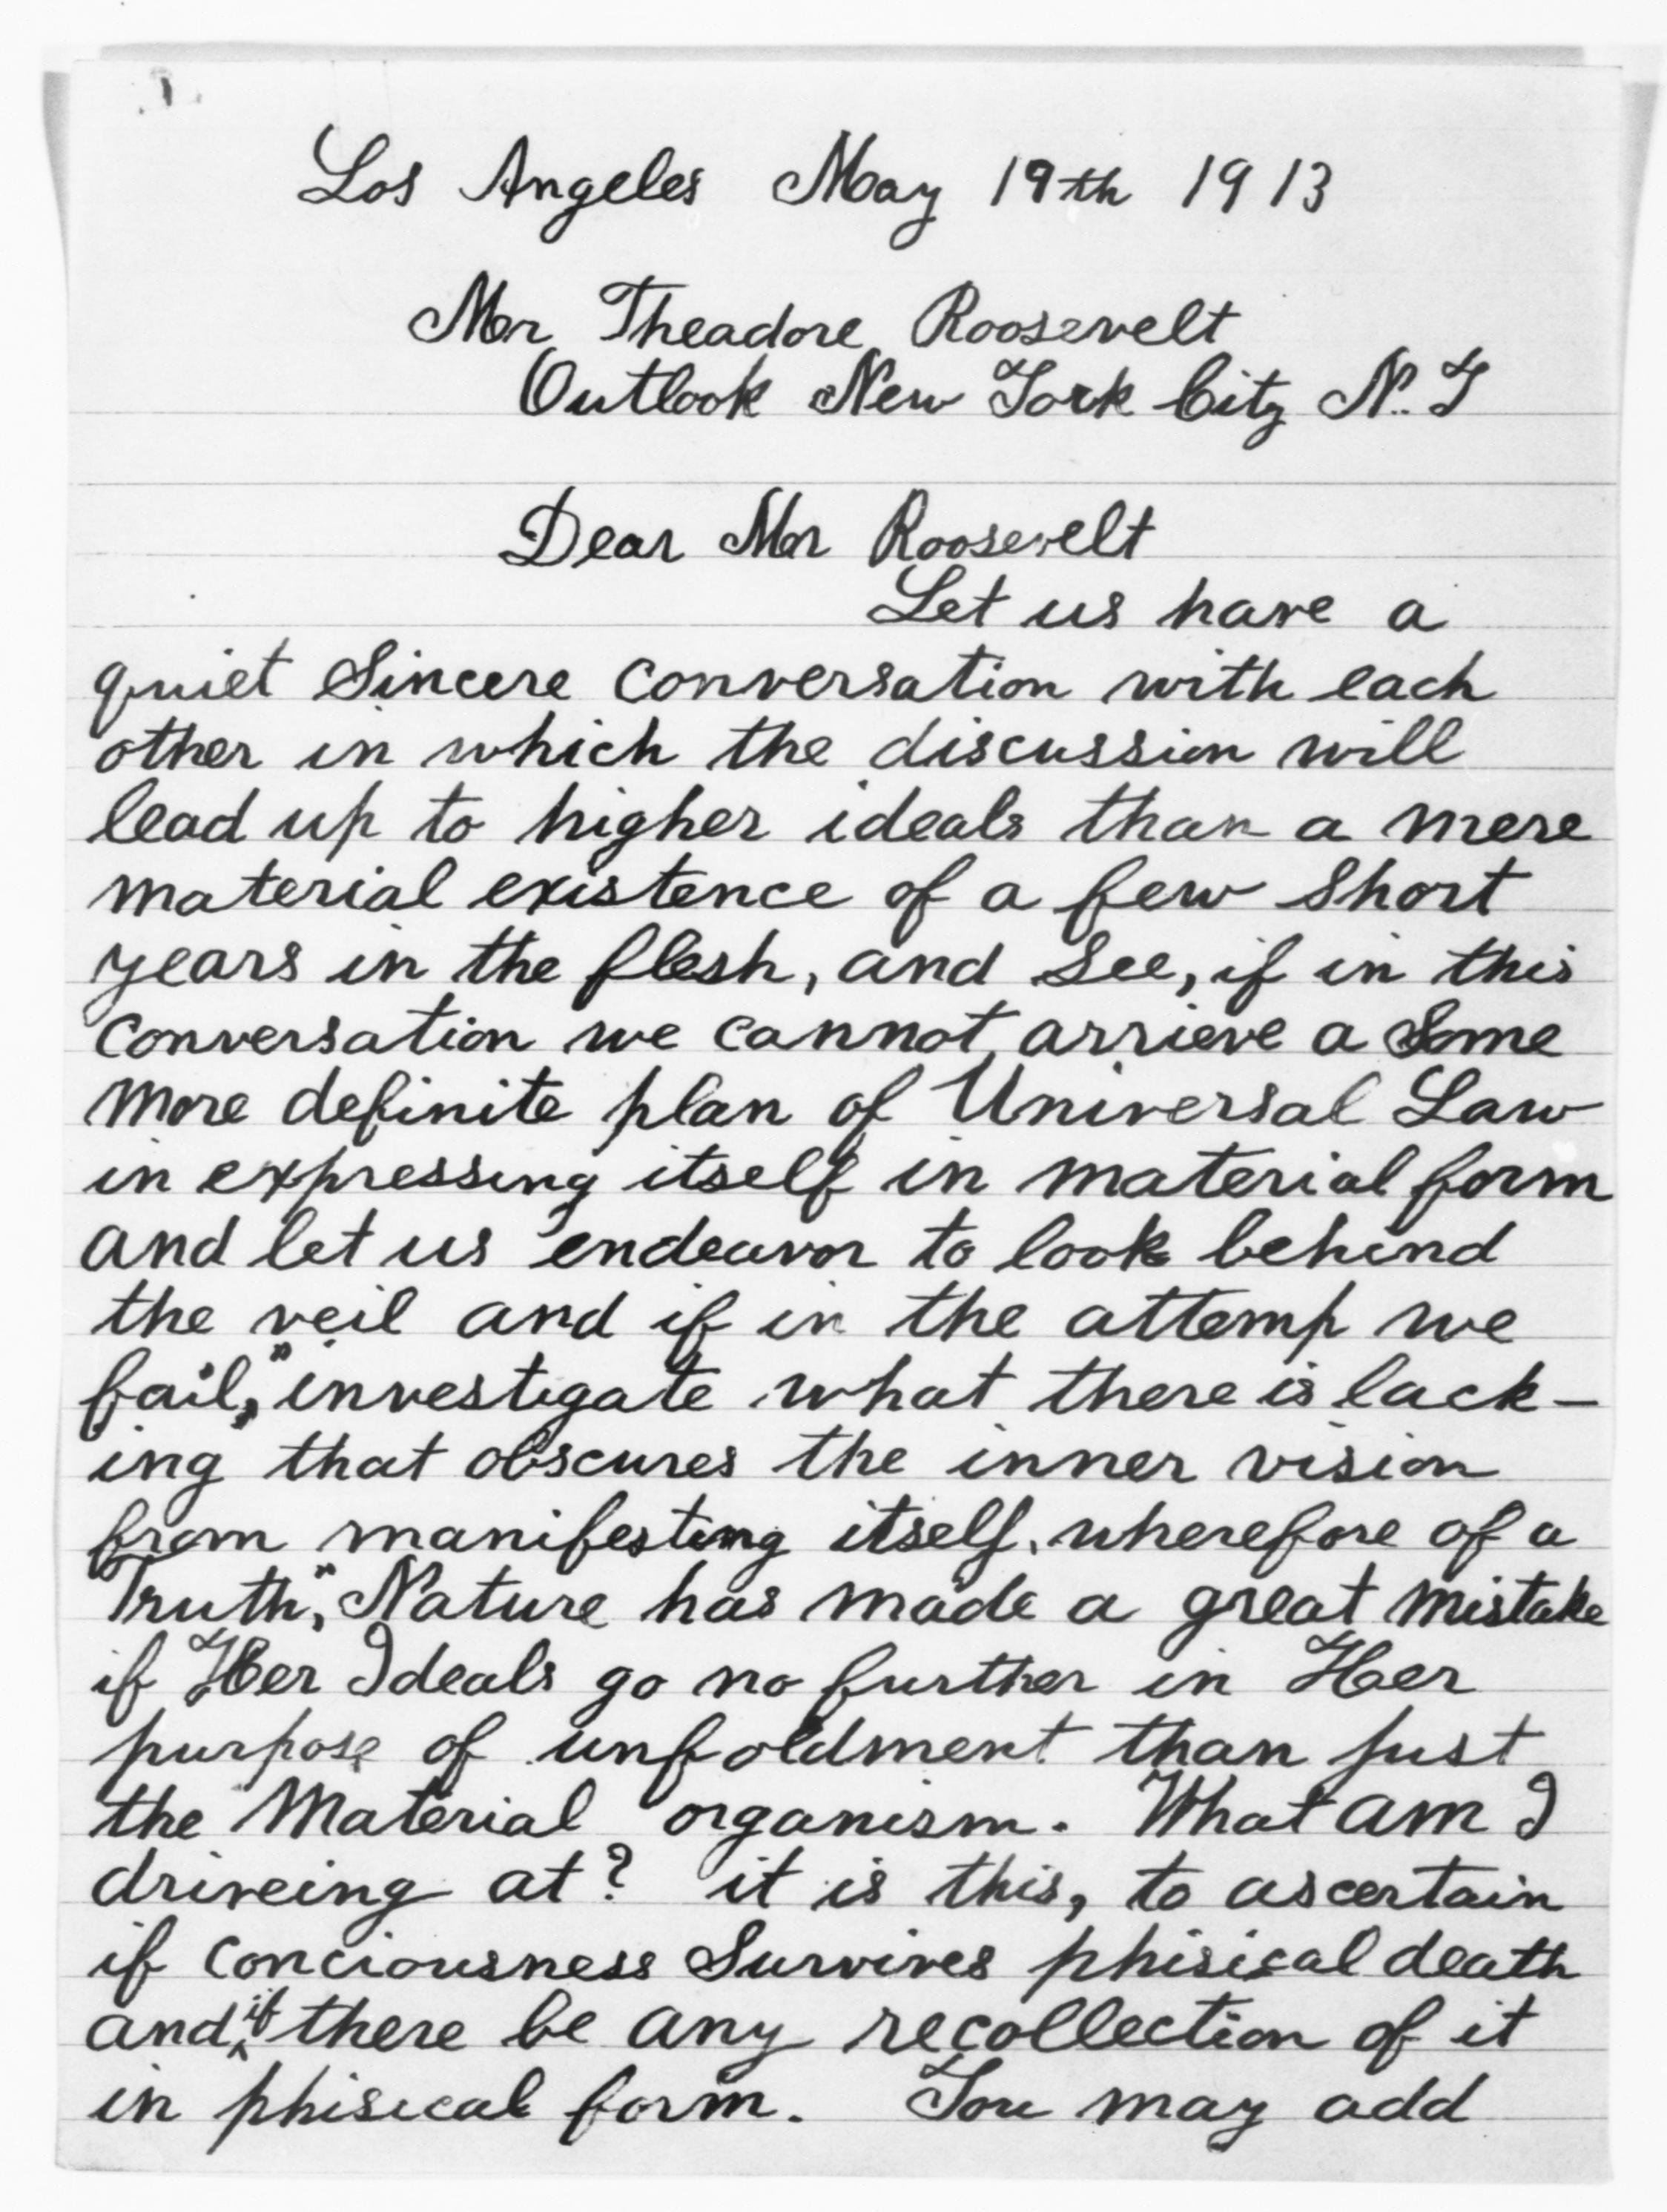 Los Angeles May 19th 1913
Mr Theadore Roosevelt
Outlook New York City N.Y
Dear Mr Roosevelt
Let us have a
quiet Sincere Conversation with each
other in which the discussion will
lead up to higher ideals than a mere
material existence of a few Short
years in the flesh, and See, if in this
Conversation we cannot arrieve a Some
more definite plan of Universal Law
in expressing itself in material form
and let us endeavor to look behind
the veil and if in the attemp we
fail, "investigate what there is lack-
ing" that obscures the inner vision
from manifesting itself, wherefore of a
Truth," Nature has made a great mistake
if Her Ideals go no further in Her
purpose of unfoldment than just
the Material organism. What am I
driveing at? it is this, to ascertain
if Conciousness Survives phisical death
and if there be any recollection of it
in phisical form. You may add